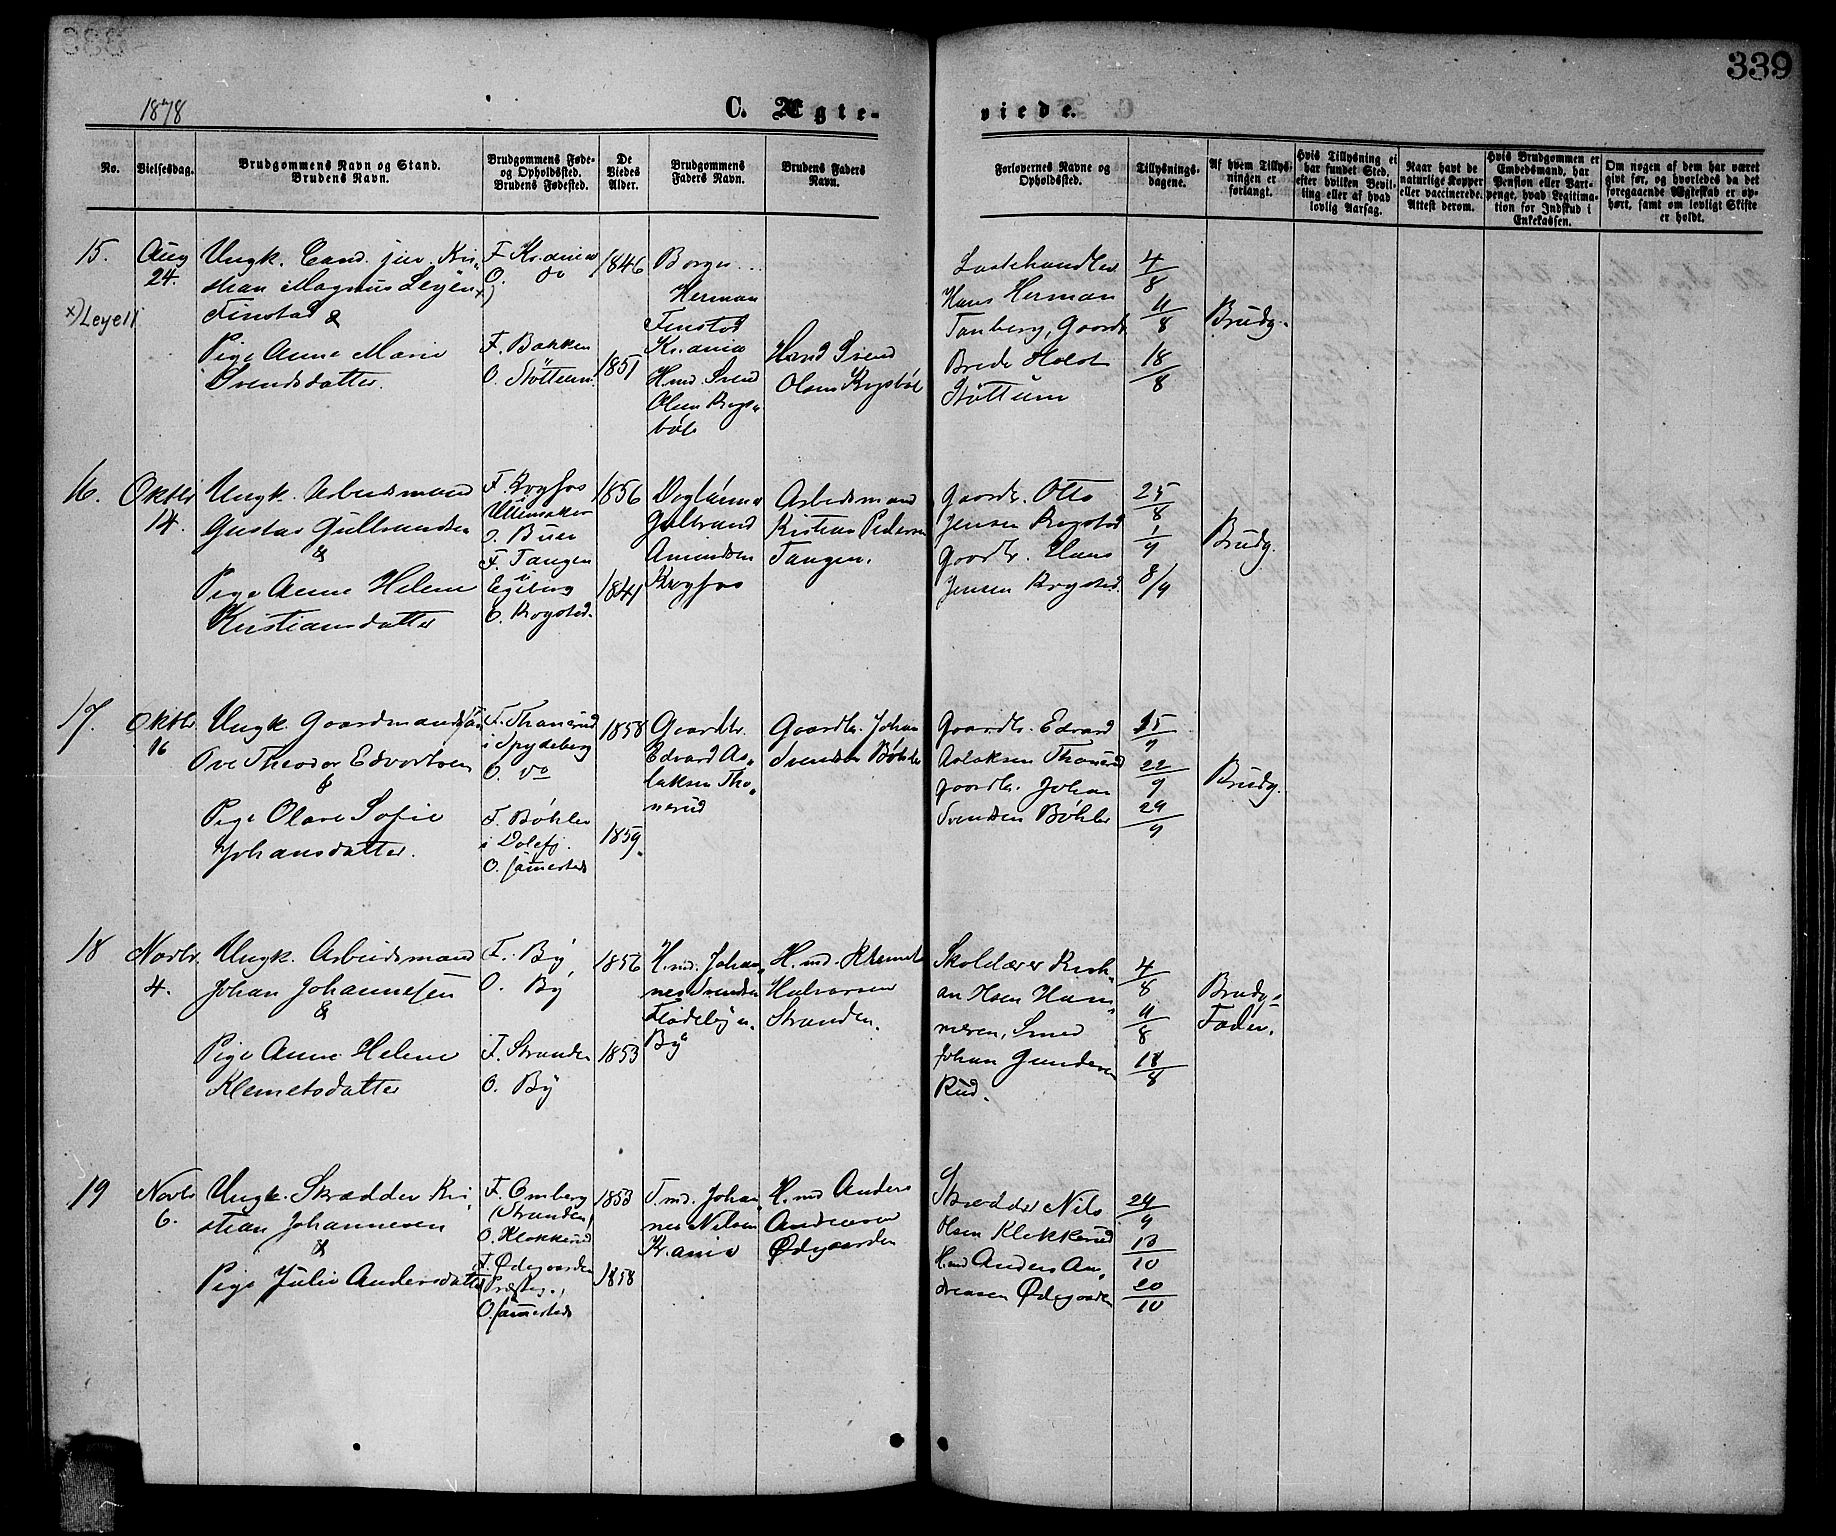 339
1878
C. Ægte-
viede.
No.
Vielsesdag.
Brudgommens Navn og Stand.
Brudens Navn.
Brudgommens Føde-
og Opholdssted.
Brudens Fødested.
De
Viedes
Alder.
Brudgommens
Faders Navn.
Brudens Faders
Navn.
Forlovernes Navne og
Opholdssted.
Tillysnings-
dagene.
Af hvem Tillys-
ningen er
forlangt.
Hvis Tillysning ei
har fundet Sted,
efter hvilken Bevil-
ling eller af hvad
lovlig Aarsag.
Naar havt de
naturlige Kopper
eller vaccinerede.
Attest derom.
Hvis Brudgommen er
Embedsmand, har
Pension eller Vart-
penge, hvad Legitima-
tion for Indskud i
Enkekassen.
Om nogen af dem har været
givt før, og hvorledes da det
foregaaende Ægteskab er op-
hørt, samt om lovligt Skifte
er holdt.
15.
Aug
24.
x) Leyell
Ungk. Cand. jur. Kri-
stian Magnus x)
Finstad &
Pige Anne Marie
Svendsdatter.
F. Kr.ania
O. do
F. Bakken
O. Støttum.
1846
1851
Borger
Herman
Finstad
Kr.ania
H.md. Svend
Olsen Rogs-
bøl
H.md Svend
Olsen Rogsbøl
Lastehandler
Hans Herman
Tanberg, Gaardb.
Brede Holst
Støttum
4/8
11/8
18/8
Brudg.
16.
Oktbr
14.
Ungk. Arbeidsmand
Gustav Gulbrandsen
&
Pige Anne Helene
Kristiansdatter
F. Krogfos
Ullensaker
O. Buer
F. Tangen
i Egeberg
O. Rogstad.
1856
1841
Dagl.
Gulbrand
Amundsen
Krogfos
Arbeidsmand
Kristian Pedersen
Tangen.
Gaardb. Otto
Jensen Rogstad
Gaardb. Hans
Jensen Rogstad.
25/8
1/9
8/9
Brudg.
17.
Oktbr.
16
Ungk. Gaardmandssøn
Ove Theodor Edvartsen
&
Pige Olave Sofie
Johansdatter.
F. Thonerud
i Spydeberg
O. do
F. Bøhler
i Dølefj.
O. sammesteds
1858
1859.
Gaardbr.
Edvard As-
laksen Tho-
nerud
Gaardbr. Johan
Svendsen Bøhler
Gaardbr. Edvard
Aslaksen Thonerud
Gaardbr. Johan
Svendsen Bøhler
15/9
22/9
29/9
Brudg.
18
Novbr.
4.
Ungk. Arbeidsmand
Johan Johannesen
&
Pige Anne Helene
Klemetsdatter
F. By
O. By
F. Stranden
O. By
1856
1853
H.md. Johan-
nes Svendsen
Flødeby u.
By
H.md. Klemet
Halvorsen
Stranden.
Skolelærer Kristi-
an Olsen Ham-
meren, Smed
Johan Gundersen
Rud.
4/8
11/8
18/8
Brudg-
Fader.
19
Novbr
6.
Ungk. Skrædder Kri-
stian Johannesen
&
Pige Julie Andersdatter
F. Omberg
(Stranden)
O. Klokkerud
F. Ødegaarden
Præsteg.,
O. sammesteds
1853
1858
T.md. Johan-
nes Nilsen
Kr.ania
H.md Anders
Andersen
Ødegaarden
Skrædder Nils
Olsen Klokkerud
H.md Anders An-
dersen Ødegaarden
29/9
13/10
20/10